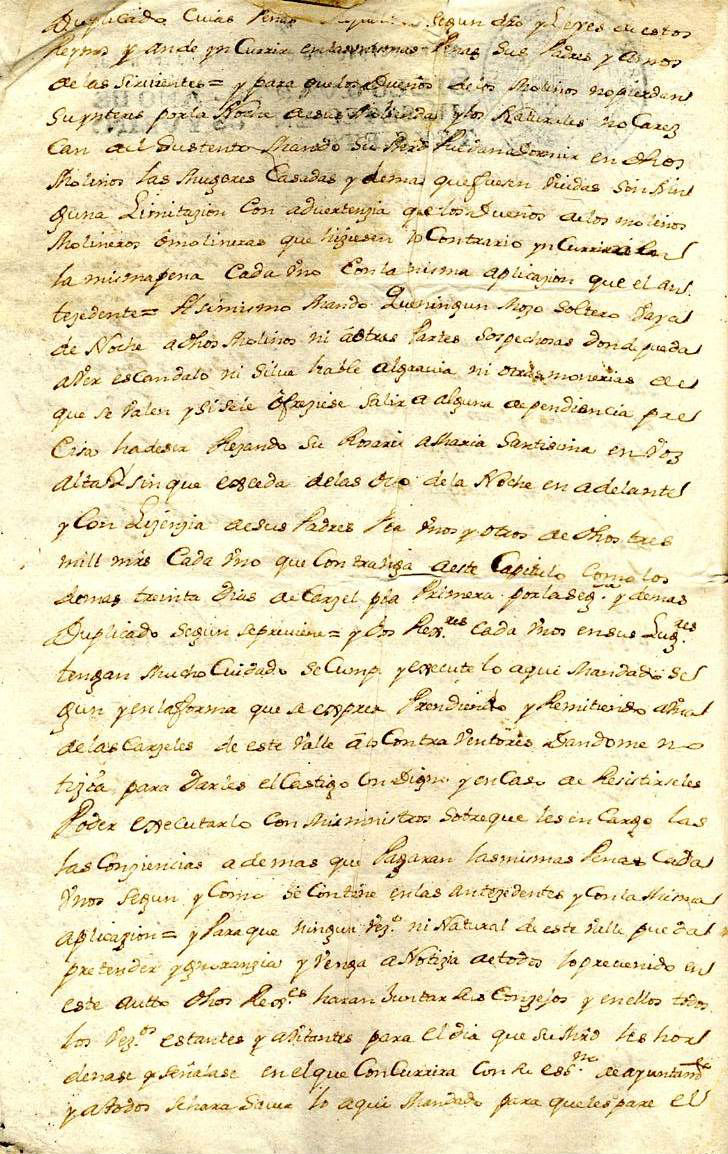 Duplicado Cuias Penas segun dro y Leyes de estos
Reynos y ande yn Currir en las mismas Penas sus Padres y Amos
de las sirvientes = y para que los Dueños de los Molinos no pierdan
su ynteres por la Noche de sus Moliendas y los Naturales no Carez
can del Sustento Mando su Mrd Puedan adormir en dhos
Molinos las Mugeres Casadas y demas que fuesen Viudas sin Nin
guna Limitazion Con advertenzia que los Dueños de los molinos
Molineros ô molineras que hiziesen lo Contrario yn Currirán en
la misma pena Cada Vno Con la misma aplicazion que el an
tezedente = Assimismo Mando Que ningun Mozo Soltero Vaya
de Noche a dhos Molinos ni â otras Partes Sospechosas donde pueda
aver escandalo ni Silve hable algaravia ni otras monerias de
que se Valen y si se le ôfreziese Salir a alguna dependiencia pre
cisa ha de ser Rezando su Rosario a Maria Santisima en Voz
alta y sin que exceda de las Ocho de la Noche en adelante
y Con Lizenzia de sus Padres Pea Vnos y otros de dhos tres
mill mrs Cada Vno que Contravenga a este Capitulo Como los
demas treinta Dias de Carzel pla Primera por la segda y demas
Duplicado segun se previene = y dhos Rexres Cada Vnos en sus Lugres
tengan Mucho Cuidado se Cumpa y execute lo aqui Mandado se
gun y en la forma que se expresa Prendiendo y Remitiendo a Vna
de las Carzeles de este Valle â los Contra Ventores Dandome no
tizia para Darles el Castigo Condigno y en Caso de Resistirseles
Poder executarlo Con Mis ministros Sobre que les en Cargo las
las Conziencias a demas que Pagaran las mismas Penas Cada
Vnos segun y Como se Contiene en las Antezedentes y Con la Misma
aplicazion = y Para que Ningun Vezo ni Natural de este Valle pueda
pretender ygnoranzia y Venga a Notizia de todos lo prevenido en
este Autto dhos Rexres haran Juntar sus Conzejos y en ellos todos
los Vezos estantes y avitantes para el dia que su Mrd les hor
denase y señalase en el que ConCurrira Con su essno de ayuntamto
y a todos se hara Saver lo aqui Mandado para que les pare el